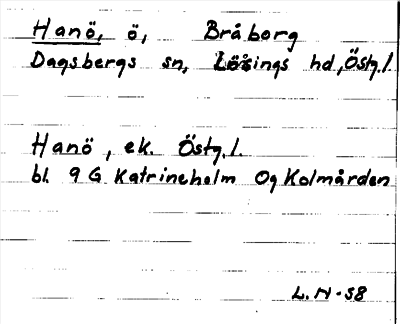 Hanö, ö, Bråborg
Dagsbergs sn, Lösings hd, Östg.l.
Hanö, ek. Östg.l.
bl. 9 G Katrineholm Og Kolmården
L. N - 58